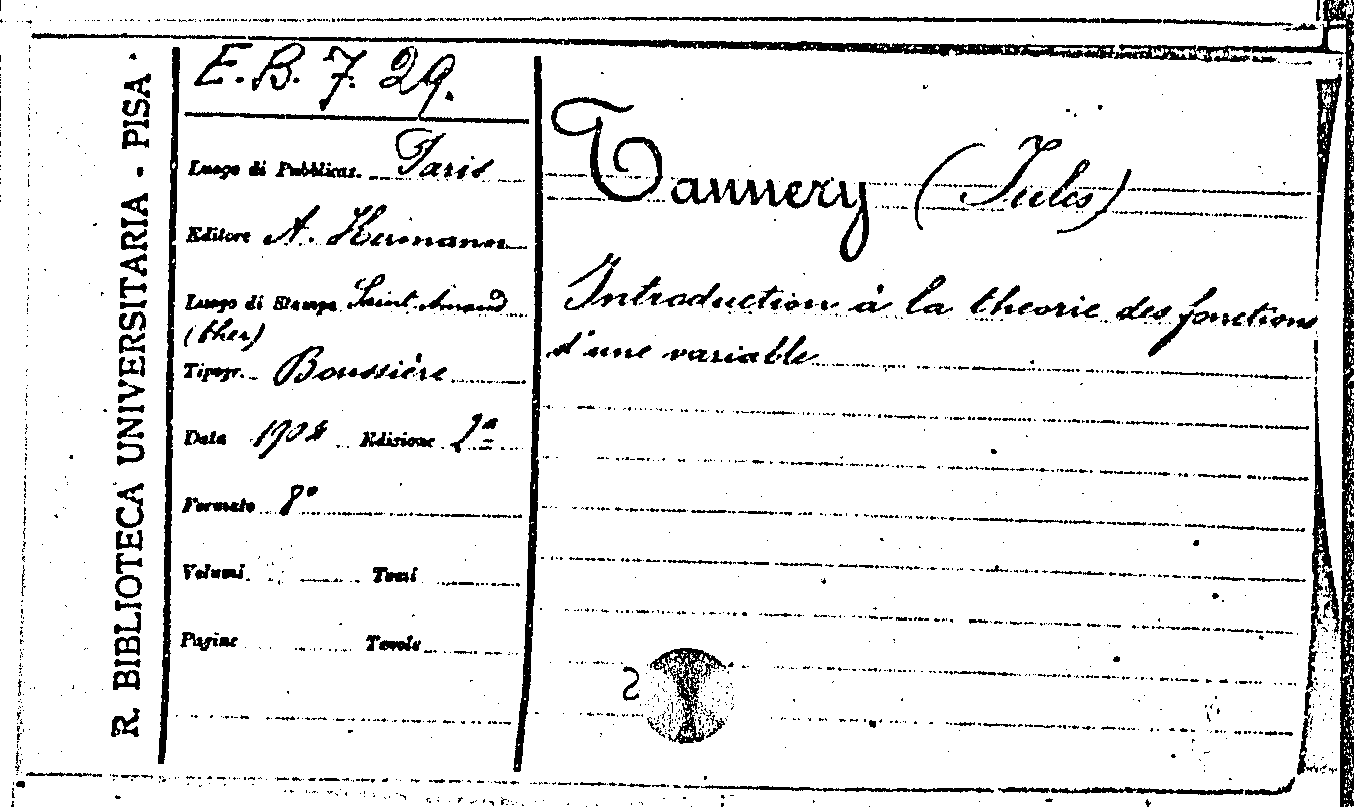 R. BIBLIOTECA UNIVERSITARIA - PISA
E. B. 7. 29.
Luogo di Pubblicaz. Paris
Editore A. Hermann
Luogo di Stampa Saint Amand
(Cher)
Tipogr. Boussière
Data 1904 Edizione 2ª
Formato 8º
Volumi Tomi
Pagine Tavole
Tannery (Jules)
Introduction à la theorie des fonctions
d'une variable
S